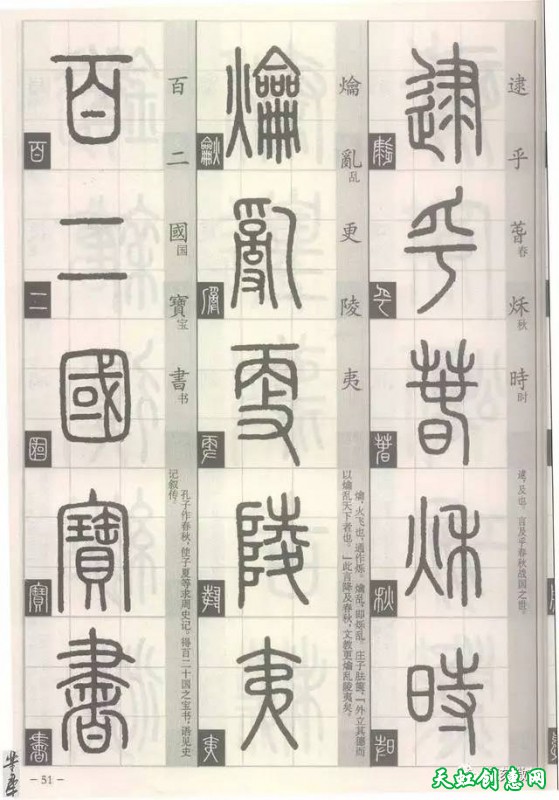 逮乎萅春秌秋時时
逮
乎
萅
秌
時
逮，及也。言及乎春秋战国之世。
爚亂乱更陵夷
爚
亂
更
陵
夷
爚，火飞也，通作烁。爚乱，即烁乱。庄子胠箧，「外立其德而
以爚乱天下者也。」此言降及春秋，文教更爚乱陵夷矣。
百二國国寶宝書书
百
二
國
寶
書
孔子作春秋，使子夏等求周史记。得百二十国之宝书，语见史
记叙传。
－51－
天虹创意网